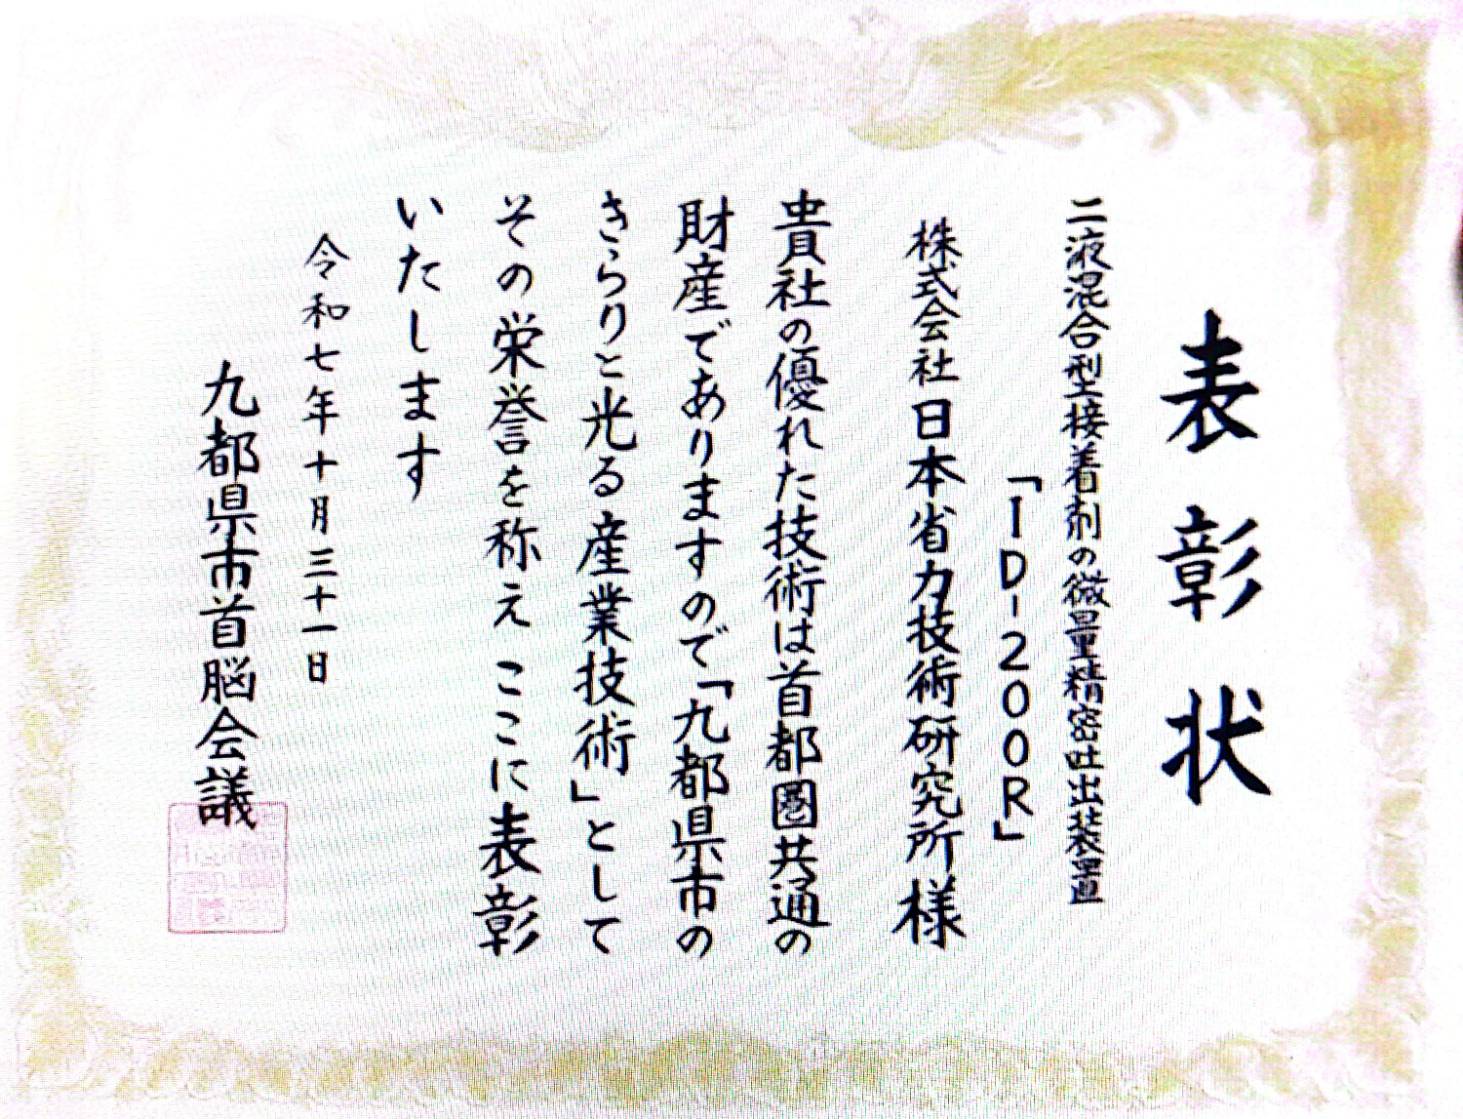 表彰状
二液混合型接着剤の微量精密吐出装置
「ID-200R」
株式会社日本省力技術研究所様
貴社の優れた技術は首都圏共通の
財産でありますので「九都県市の
きらりと光る産業技術」として
その栄誉を称え ここに表彰
いたします
令和七年十月三十一日
九都県市首脳会議